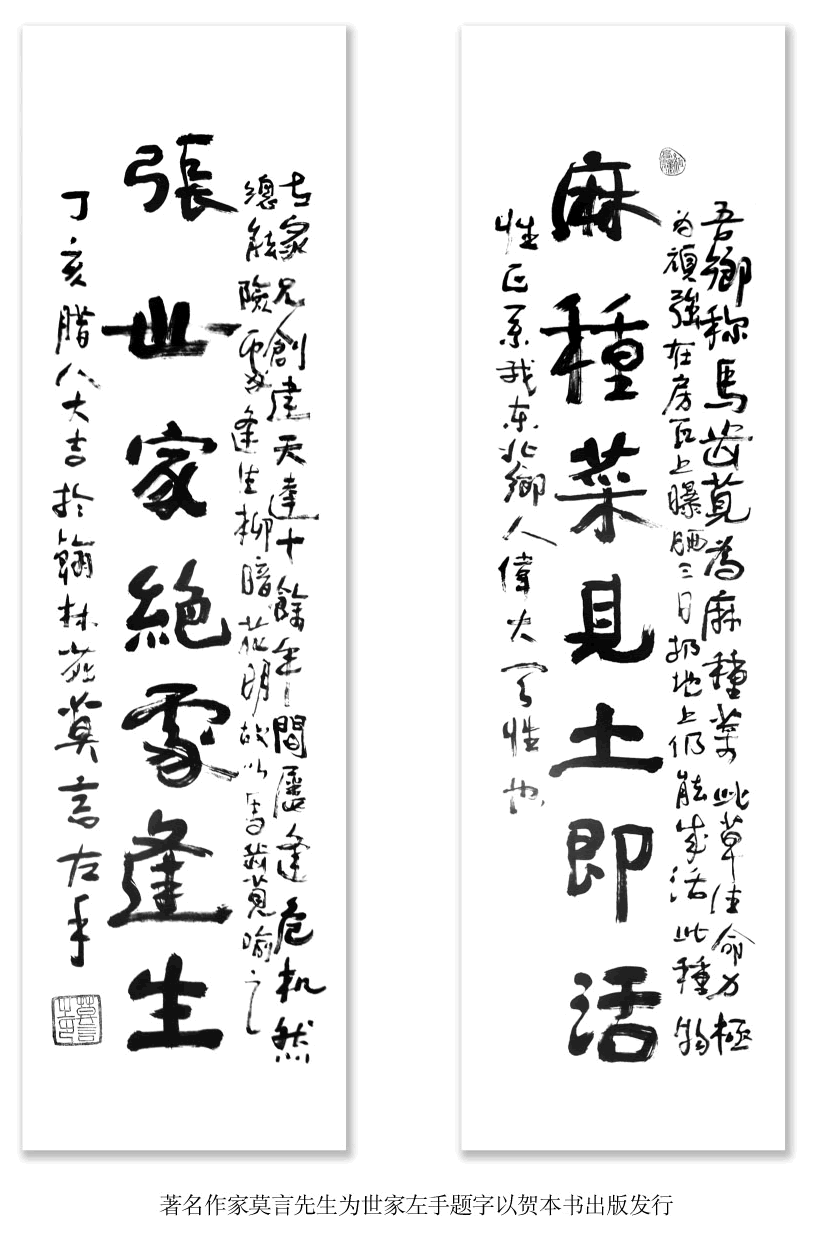 吾鄉称馬齿莧為麻種菜此草生命力極
为頑強在房瓦上曝晒三日扔地上仍能成活此種物
麻種菜見土即活
性正系我东北鄉人偉大性也
世家兄創建天達十餘年間屡逢危机然
總能險處逢生柳暗花明故以馬齿莧喻之
張世家絕處逢生
丁亥腊八大吉於翰林苑莫言左手
莫言之印
著名作家莫言先生为世家左手题字以贺本书出版发行